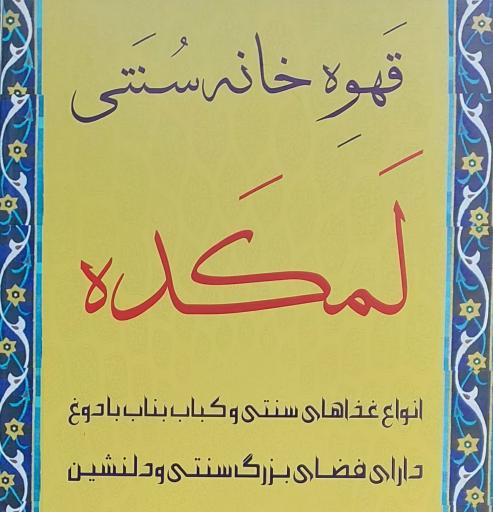 قَهوِه خانه سُنَتی
لَمکَده
انواع غذاهای سنتی و کباب بناب با دوغ
دارای فضای بزرگ سنتی و دلنشین